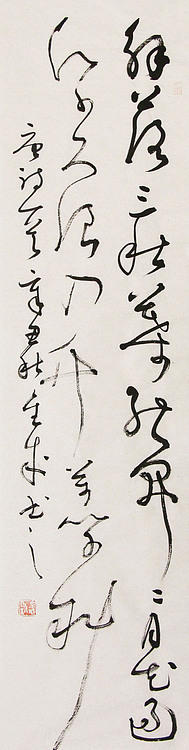 解落三秋葉能開二月花過
江千尺浪入竹萬竿斜
唐詩一首辛丑秋書之